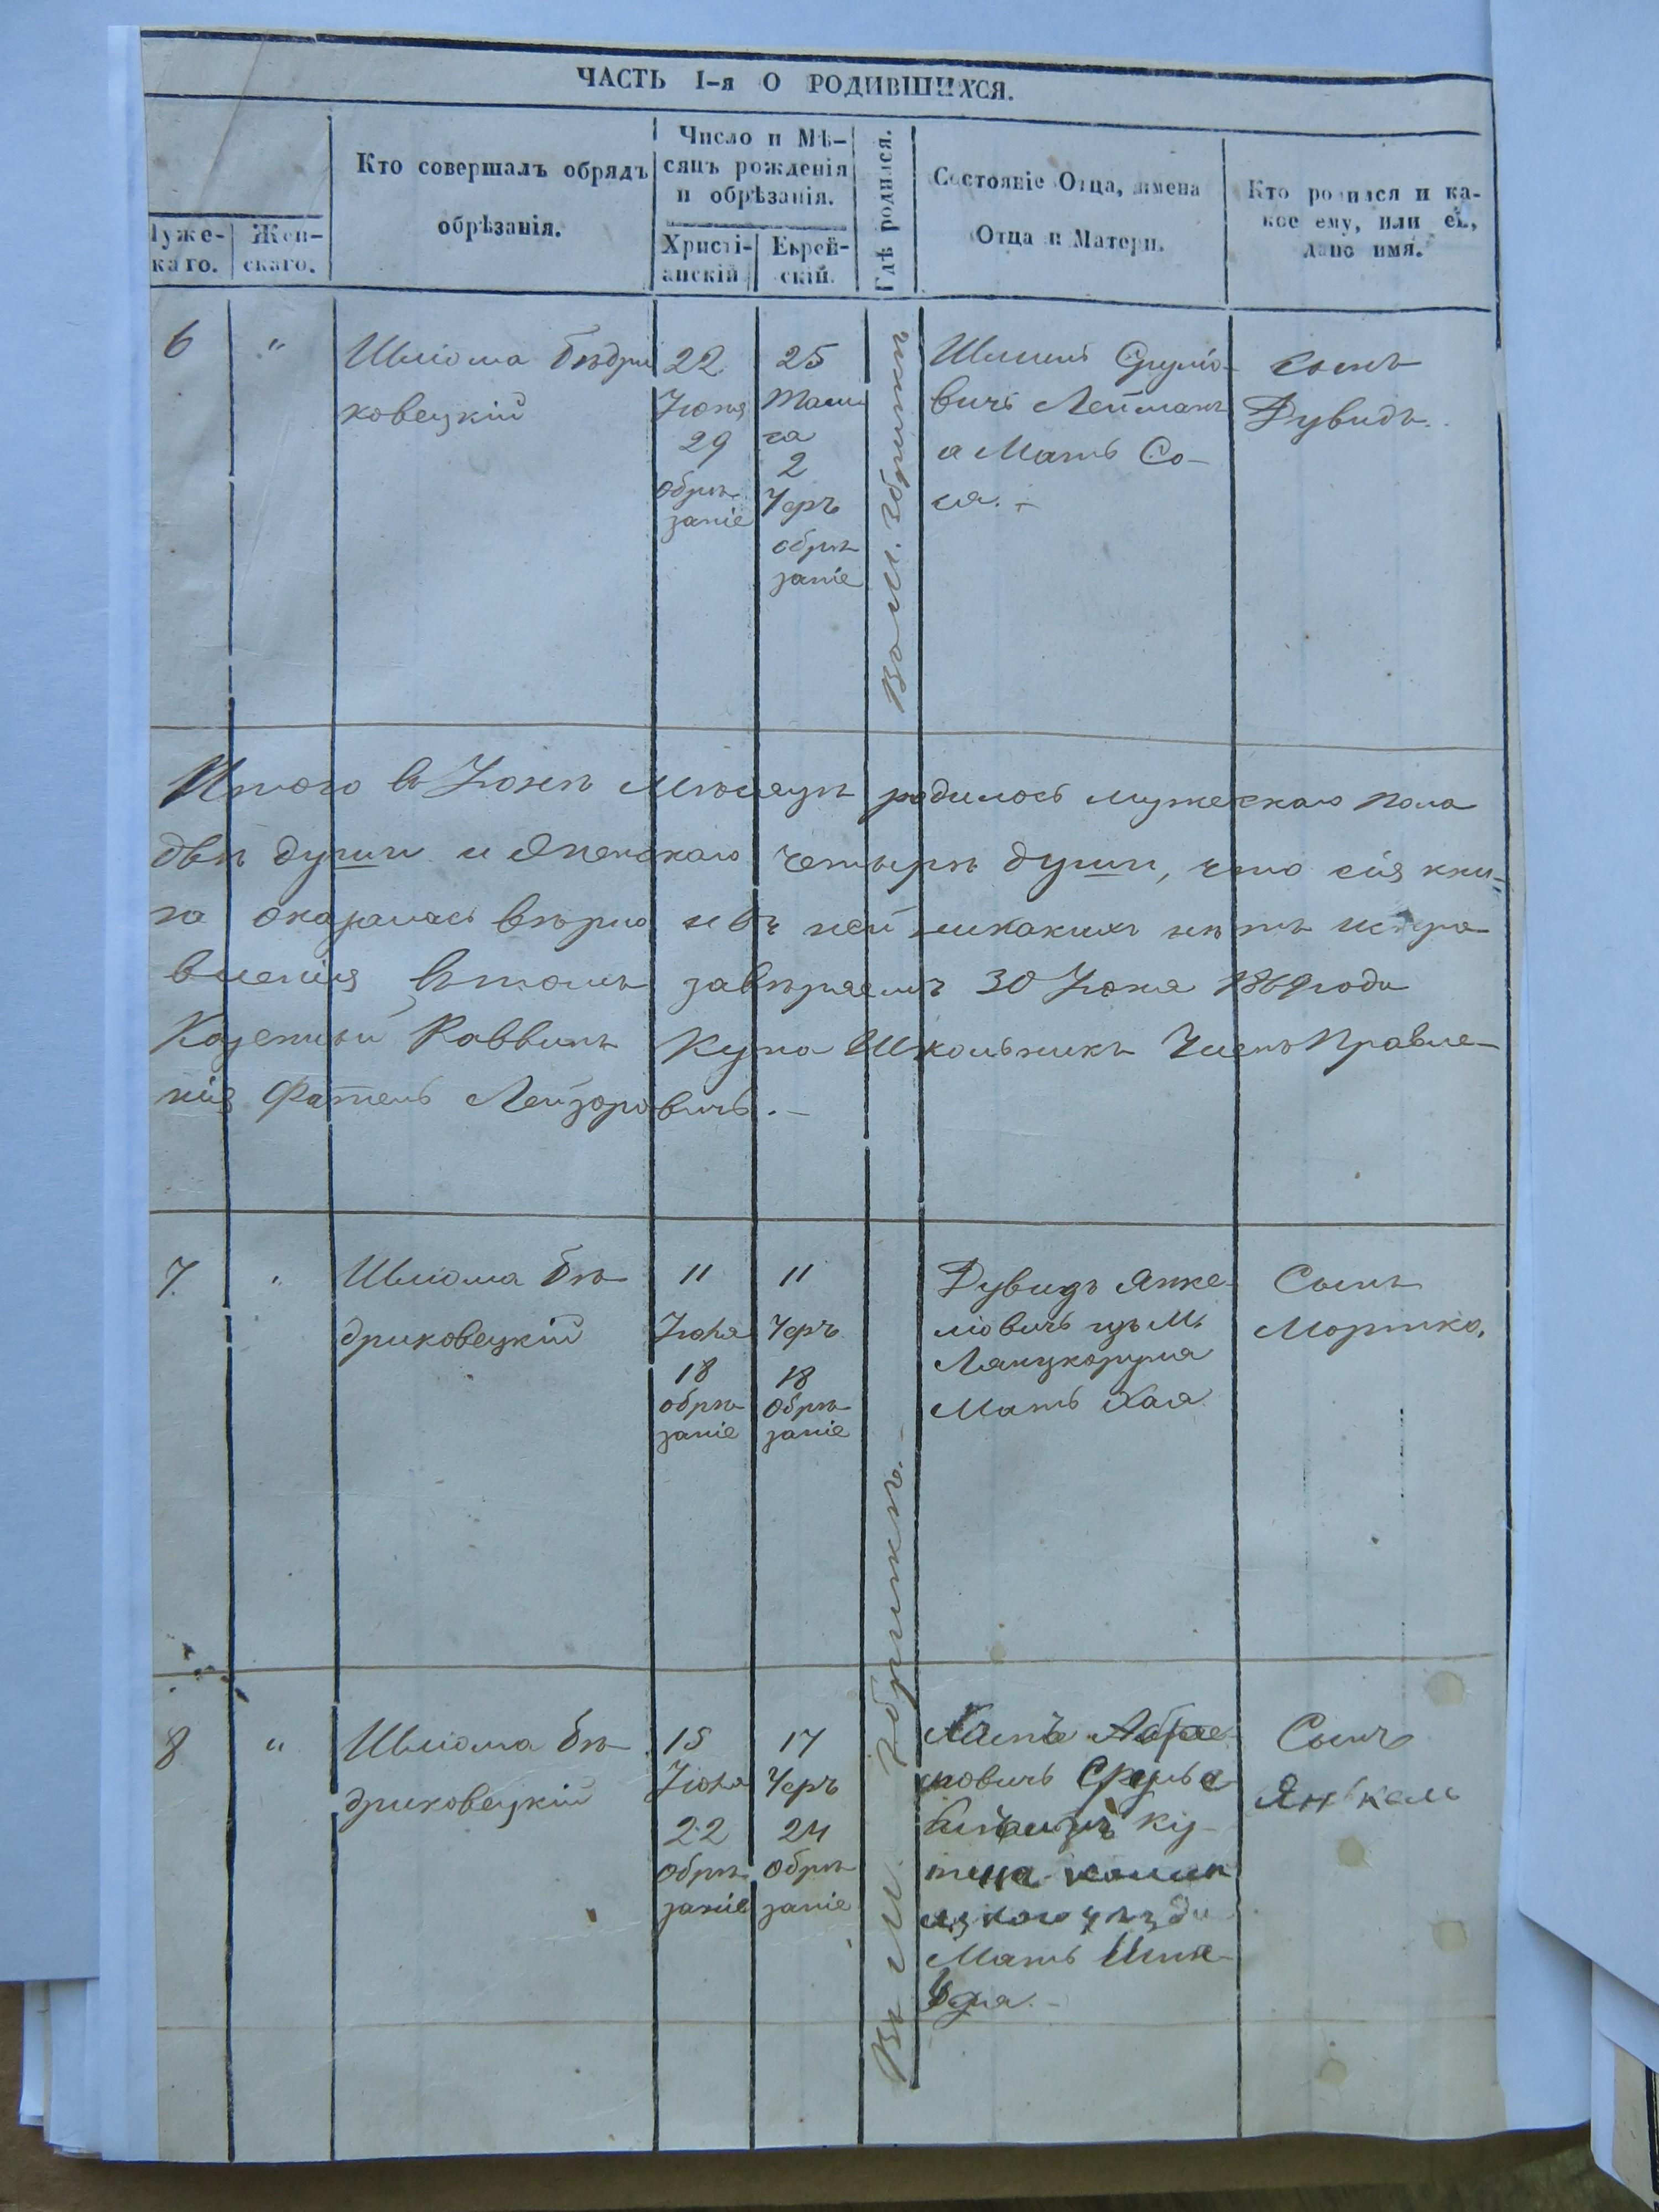 ЧАСТЬ I-я О РОДИВШИХСЯ.
Муже-
каго.
Жен-
скаго.
Кто совершалъ обрядъ
обрѣзанія.
Число и Мѣ-
сяцъ рожденія
и обрѣзанія.
Христі-
анскій
Еврей-
скій.
Гдѣ родился.
Состояніе Отца, имена
Отца и Матери.
Кто родился и ка-
кое ему, или ей,
дано имя.
6
"
Шліома Бѣдри
ковецкій
22
Іюня
29
обрѣ-
заніе
25
Таму
за
2
обрѣ
заніе
Вом. Збрижкѣ
Сруліо-
вичъ Лейтманъ
а Мать Со-
ся. -
сынъ
Дувидъ.
Итого в Іюнѣ Мѣсяцѣ родилось мужескаго пола
двѣ души и Женскаго четырѣ души, что сія кни-
га оказалась вѣрна и въ ней никакихъ нѣтъ испра
вленія втомъ завѣряемъ 30 Іюня 1869 года
Казенный Раввинъ Школьникъ Членъ Правле-
нія Лейзоровичъ. -
7.
"
Шліома Бѣ-
дриковецкій
11
Іюля
18
обрѣ-
заніе
11
18
Обрѣ-
заніе
Въ М. Збрижкѣ. -
Дувидъ Янке-
ліовичъ изъ М.
Лянцкоруна
Мать Хая
Сынъ
Мортко.
8
"
Шліома Бѣ-
дриковецкій
15
Іюля
22
Обрѣ-
заніе
17
24
Обрѣ-
заніе
Мать
Сынъ
Янкель